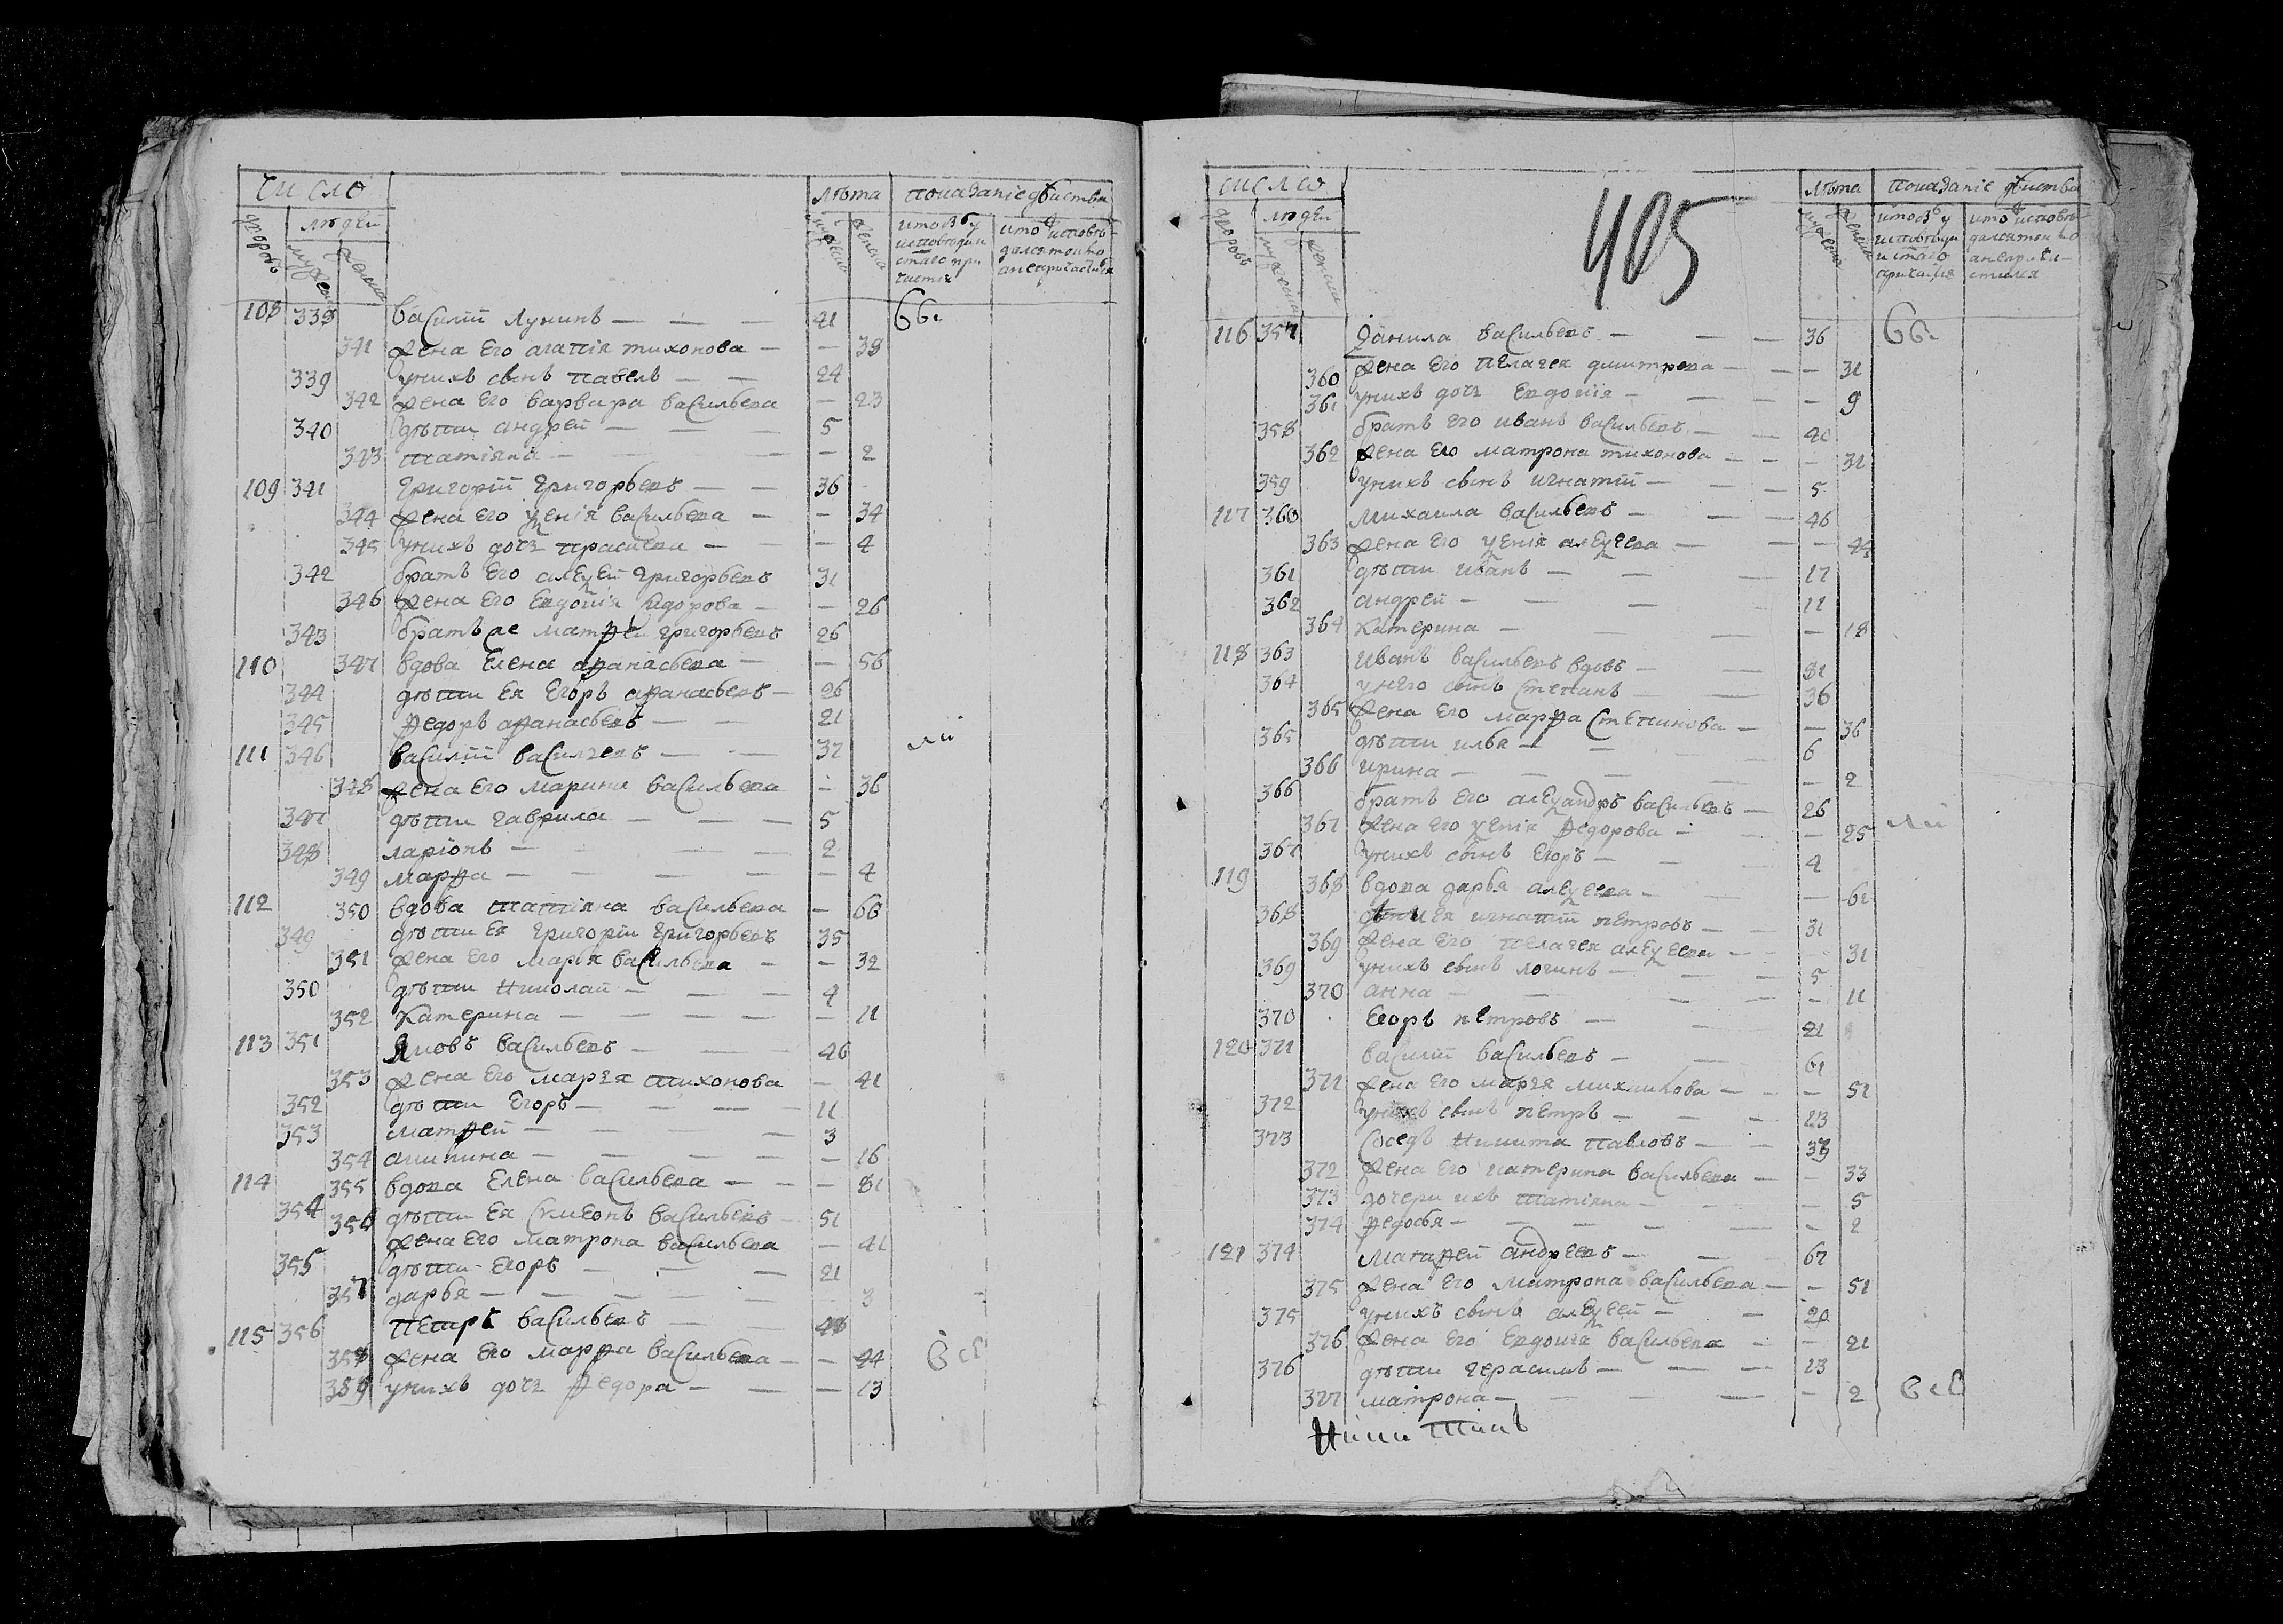 число лѣта показаніе дѣиства
дворовъ людеи мужеска женска мужеска женска
кто бъ у исповѣди и стаго причастия
кто исповѣдался токмо а не причастился
108 338 василїй Лукинъ — — — 41 бы
341 жена его агапїя тихонова — — 38
339 у нихъ сынъ павелъ — — 24
342 жена его варвара васильева — 23
340 дѣти андрей — — — 5
343 татїяна — — — 2
109 341 григорїй григорьевъ — — 36
344 жена его ѯенїя васильева — — 34
345 у нихъ дочь прасковя — — 4
342 братъ его алеѯей григорьевъ 31
346 жена его евдокїя сидорова — — 26
343 братъ же матѳей григорьевъ 26
110 347 вдова елена аѳанасьева — — 56
344 дѣти ея егоръ аѳанасьевъ — 26
345 ѳедоръ аѳанасьевъ — — 21
111 346 василїй васильевъ — — 37 ли
348 жена его марина васильева — 36
347 дѣти гаврила — — — 5
348 ларїонъ — — — 2
349 марѳа — — — — — 4
112 350 вдова татїяна васильева — 66
349 дѣти ея григорїи григорьевъ 35
351 жена его марїя васильева — — 32
350 дѣти николай — — — 4
352 катерина — — — — — 11
113 351 яковъ васильевъ — — — 46
353 жена его марїя тихонова — 41
352 дѣти егоръ — — — — 11
353 матѳей — — — — 3
354 акилина — — — — — 16
114 355 вдова елена васильева — — — 81
354 дѣти ея сѵмеонъ васильевъ — 51
356 жена его матрона васильева — 41
355 дѣти егоръ — — — 21
357 дарья — — — — — 3
115 356 петръ васильевъ — — 48
358 жена его марѳа васильева — — 44 всѣ
359 у нихъ дочь ѳедора — — — 13
число лѣта показаніе дѣиства
дворовъ людеи мужеска женска мужеска женска
кто бъ у исповѣди и стаго причастия
кто исповѣдался токмо а не причастился
405
116 357 данила васильевъ — — — 36 бы
360 жена его пелагея дмитрева — — — 31
361 у нихъ дочь евдокїя — — — — 9
358 братъ его иванъ васильевъ — — 40
362 жена его матрона тихонова — — — 31
359 у нихъ сынъ игнатїй — — — 5
117 360 михаила васильевъ — — — 46
363 жена его ѯенїя алеѯеева — — — 44
361 дѣти иванъ — — — 17
362 андрей — — — — 11
364 катерина — — — — 18
118 363 иванъ васильевъ вдовъ — — 81
364 у него сынъ степанъ — — 36
365 жена его марѳа степанова — — 36
365 дѣти илья — — — 6
366 ирина — — — — — 2
366 братъ его алеѯандръ васильевъ — 26
367 жена его ѯенїя ѳедорова — — — 25 ли
367 у нихъ сынъ егоръ — — — 4
119 368 вдова дарья алеѯеева — — — 61
368 дѣти ея игнатїй петровъ — — 31
369 жена его пелагея алеѯеева — — 31
369 у нихъ сынъ логинъ — — — 5
370 анна — — — — — 11
370 егоръ петровъ — — 21
120 371 василїй васильевъ — — 61
371 жена его марїя михаикова — — — 51
372 у нихъ сынъ петръ — — — 13
373 соседъ никита павловъ — — 38
372 жена его катерина васильева — — 33
373 дочери ихъ татїяна — — — 5
374 ѳедосья — — — — — — 2
121 374 матѳей андреевъ — — 67
375 жена его матрона васильева — — 51
375 у нихъ сынъ алеѯей — — 20
376 жена его евдокїя васильева — — 21
376 дѣти герасимъ — — — 13
377 матрона — — — — — 2 всѣ